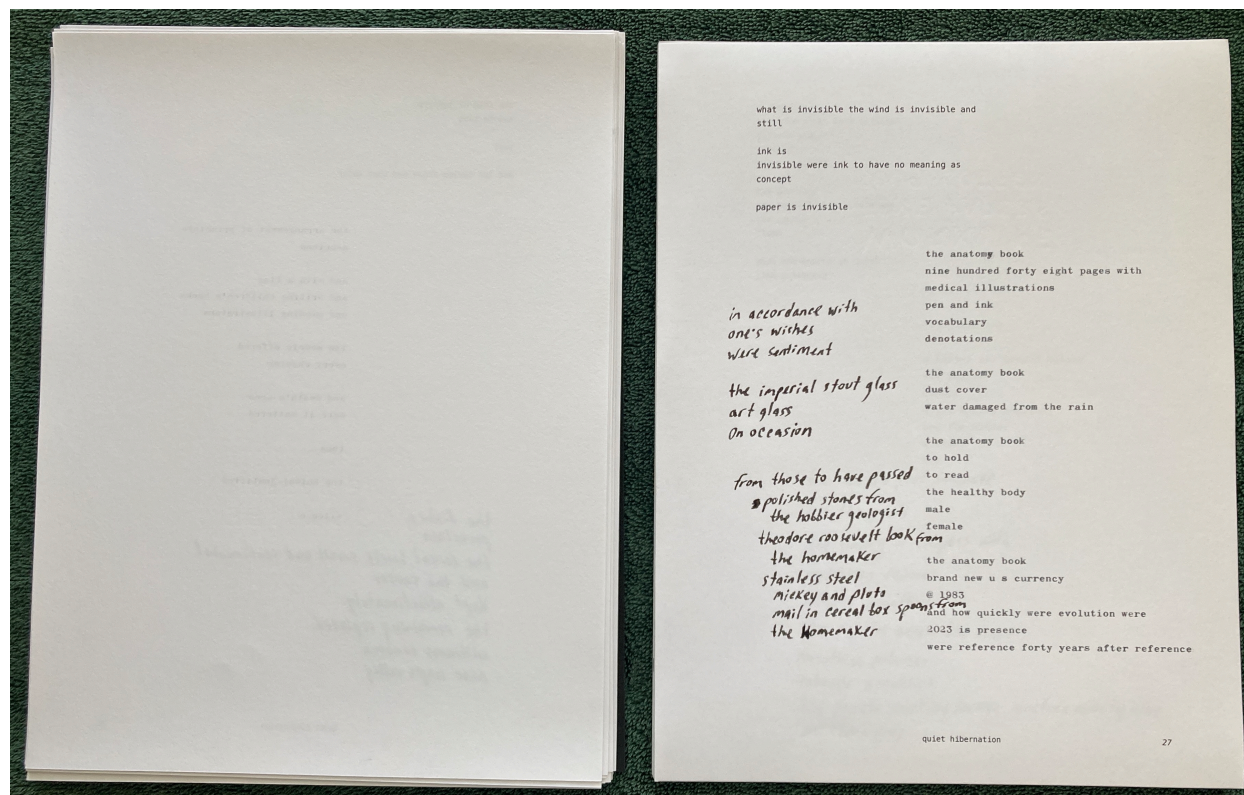 what is invisible the wind is invisible and
still
ink is
invisible were ink to have no meaning as
concept
paper is invisible
in accordance with
one's wishes
were sentiment
the imperial stout glass
art glass
On occasion
from those to have passed
polished stones from
the hobbier geologist
theodore roosevelt book from
the homemaker
stainless steel
mickey and pluto
mail in cereal box spoons from
the Homemaker
the anatomy book
nine hundred forty eight pages with
medical illustrations
pen and ink
vocabulary
denotations
the anatomy book
dust cover
water damaged from the rain
the anatomy book
to hold
to read
the healthy body
male
female
the anatomy book
brand new u s currency
@ 1983
and how quickly were evolution were
2023 is presence
were reference forty years after reference
quiet hibernation
27